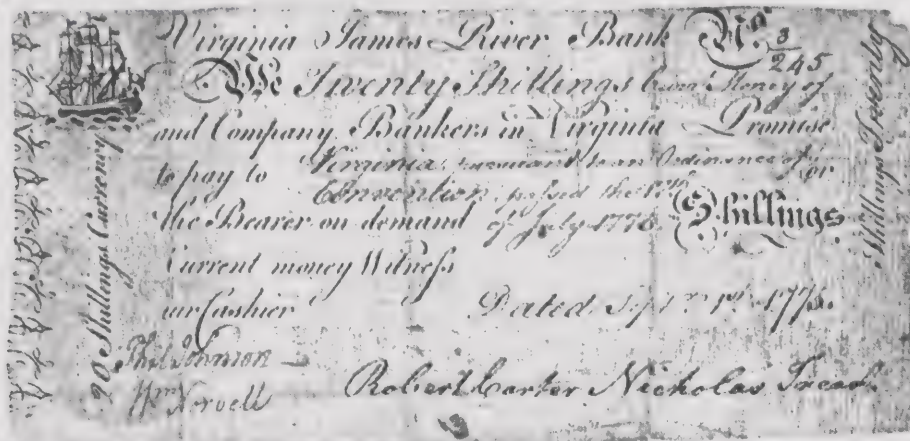 Virginia James River Bank No. 3/245
We Twenty Shillings Curr.t Money of
and Company Bankers in Virginia Promise
to pay to Virginia, pursuant to an Ordinance of or
Convention, passed the
the Bearer on demand of July 1775. Shillings
Current money Witness
our Cashier Dated Sept.r 1st 1775.
Phil Johnson
Wm Norvell Robert Carter Nicholas Treas.
20 Shillings Currency
Shillings Twenty